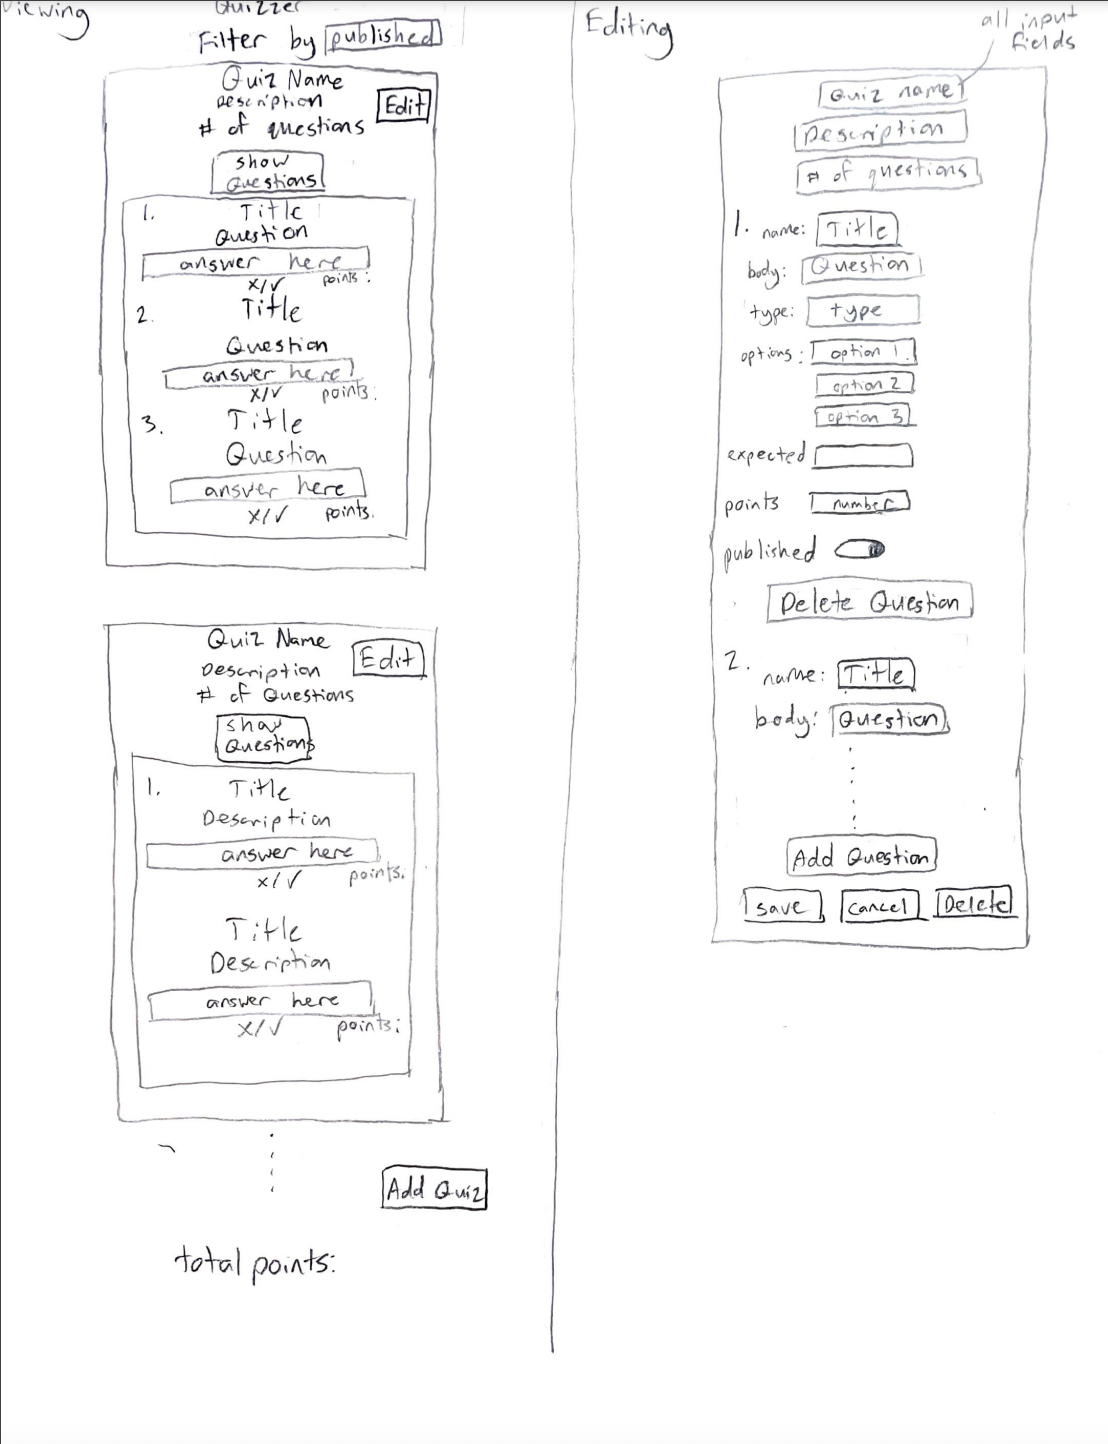 Viewing
Quizzer
Filter by published
Quiz Name
Description
Edit
# of questions
show
Questions
1. Title
Question
answer here
x/✓ points:
2. Title
Question
answer here
x/✓ points:
3. Title
Question
answer here
x/✓ points.
Quiz Name
Edit
Description
# of Questions
show
Questions
1. Title
Description
answer here
x/✓ points.
Title
Description
answer here
x/✓ points:
Add Quiz
total points:
Editing
all input
fields
Quiz name
Description
# of questions
1. name: Title
body: Question
type: type
options: option 1
option 2
option 3
expected
points number
published
Delete Question
2. name: Title
body: Question
Add Question
save cancel Delete